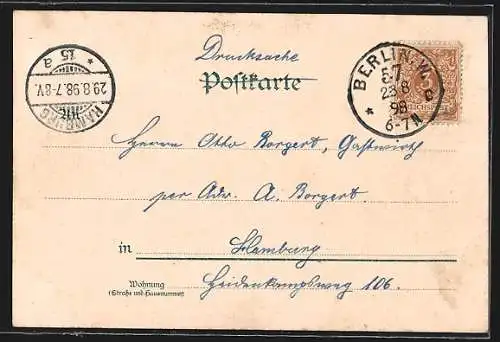 Drucksache
Postkarte
BERLIN, W.
57
28 8
98
6-7N
c
HAMBURG
29.8.98.7-8V.
* 15 a
Herrn Otto Borgert, Gastwirth
per Adr. A. Borgert
in Hamburg
Wohnung Heidenkampsweg 106.
(Straße und Hausnummer)